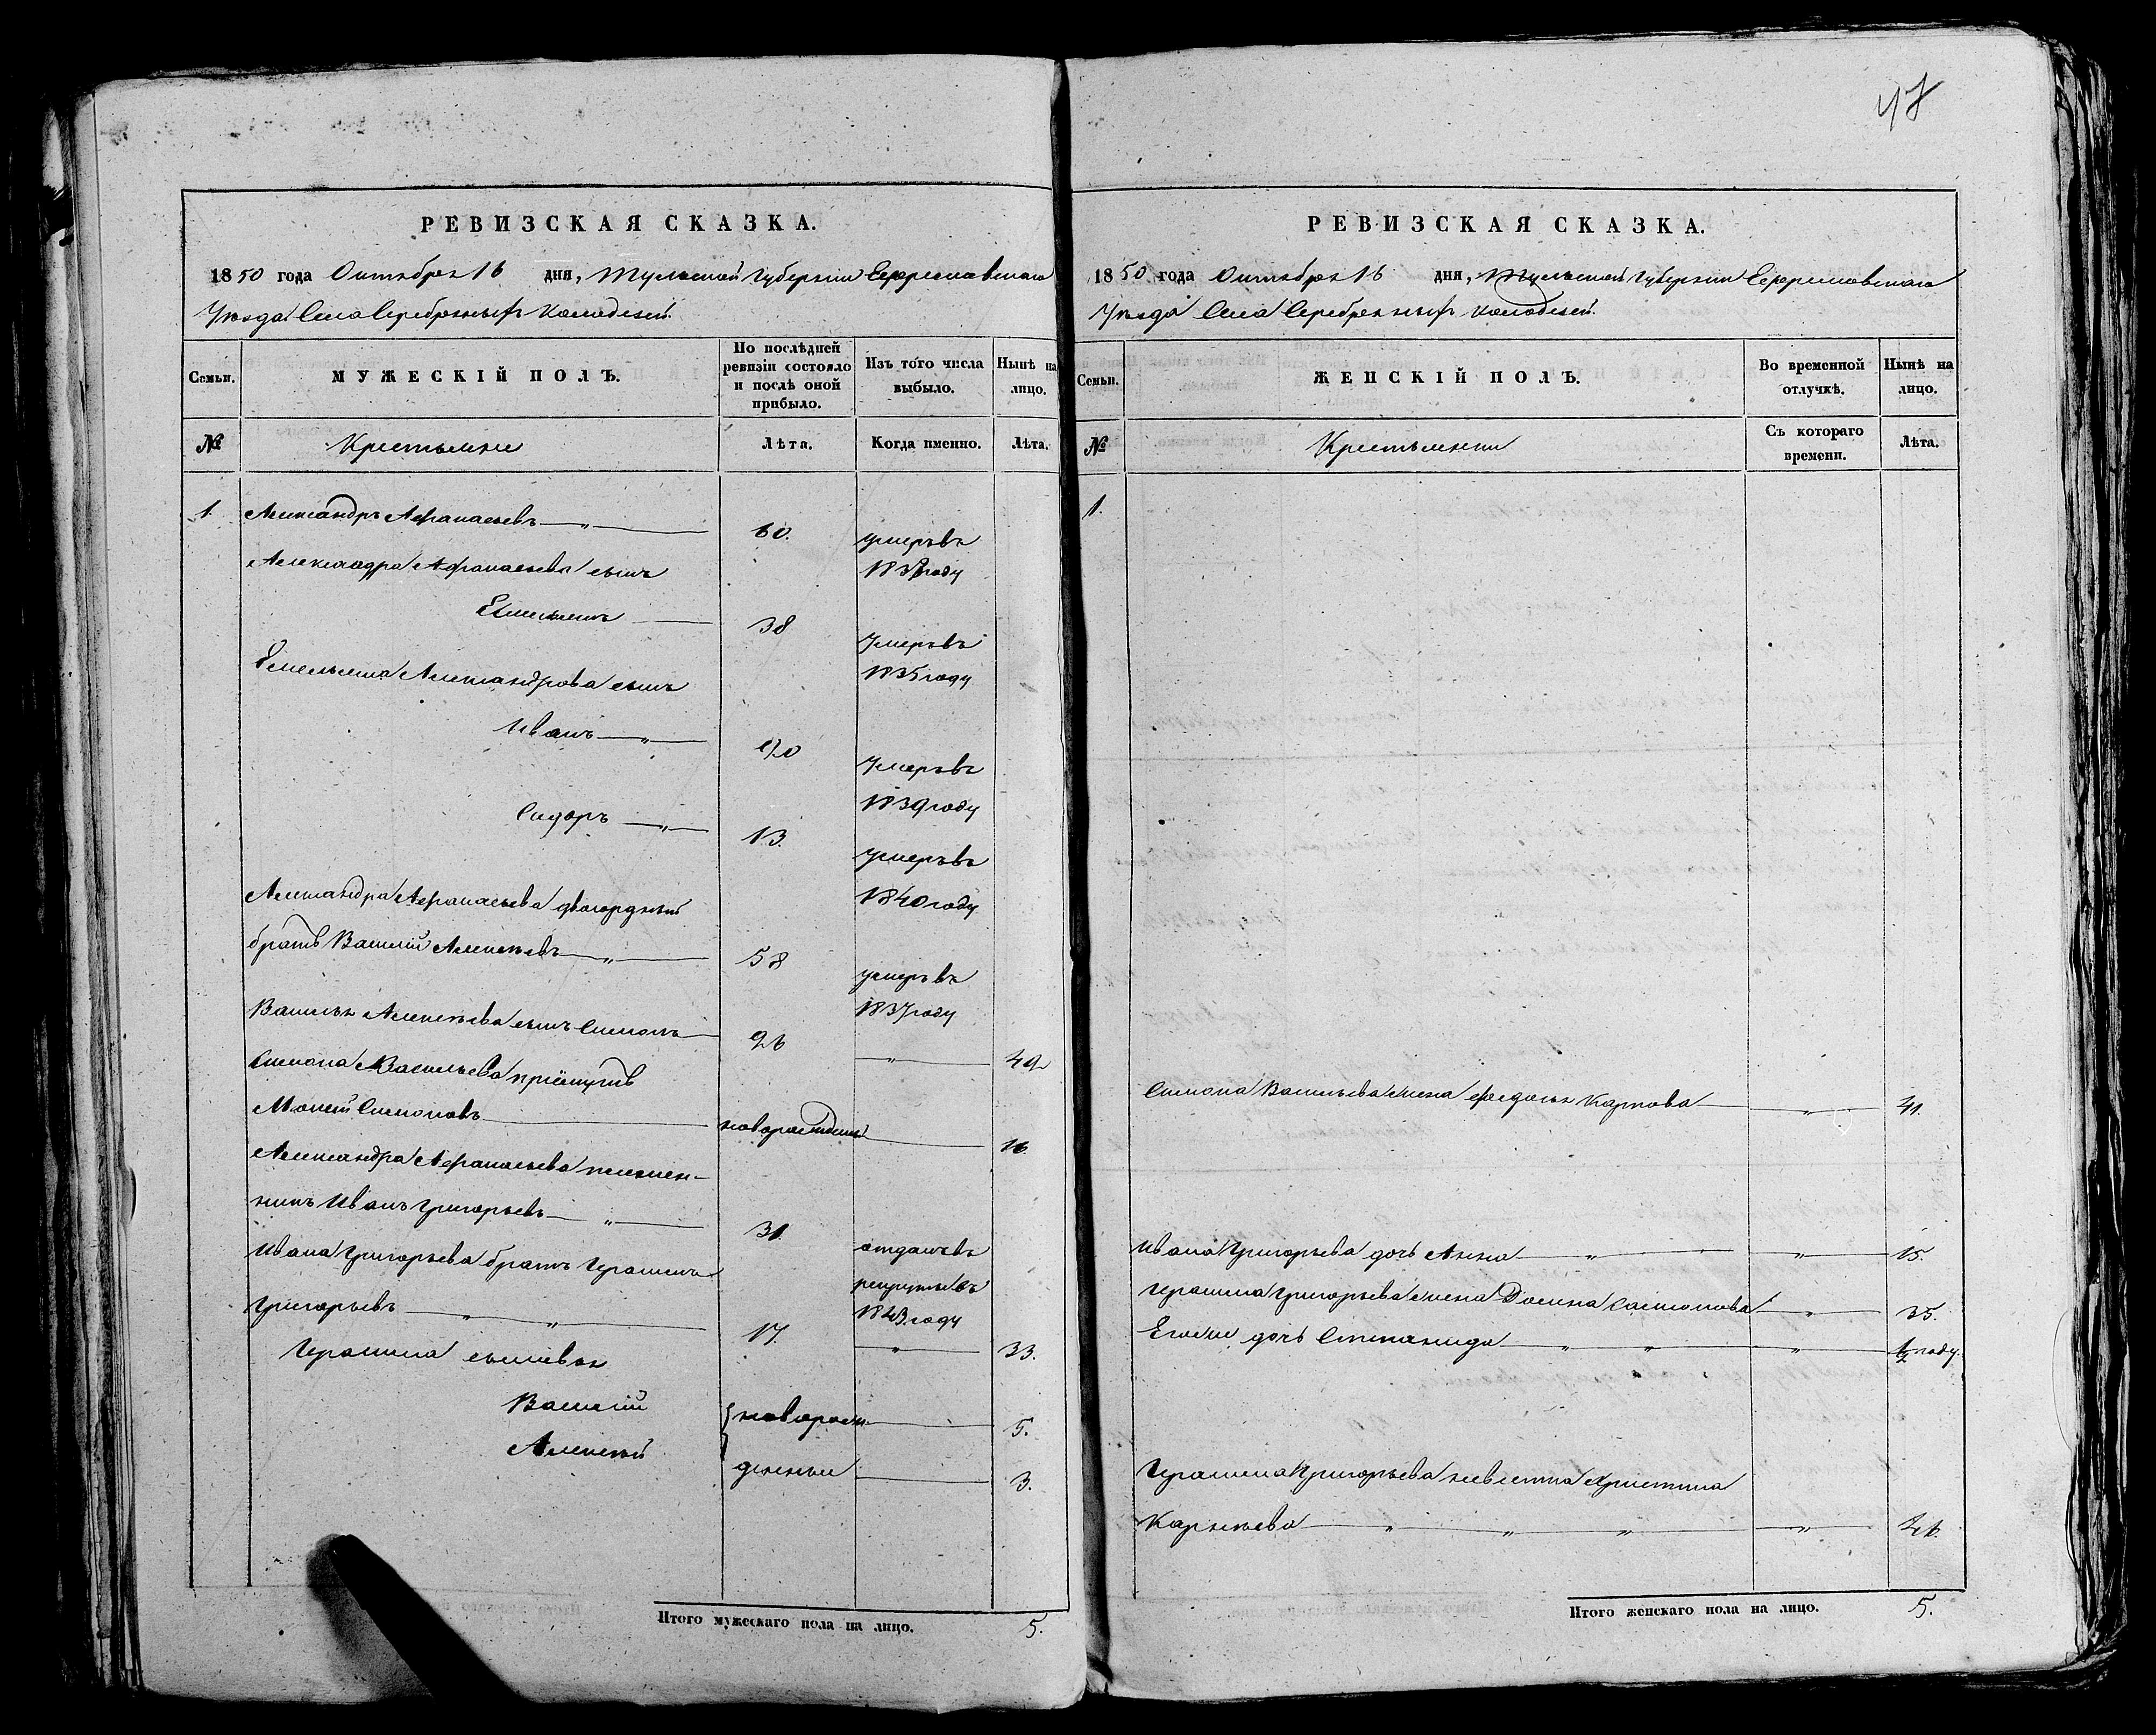 47
РЕВИЗСКАЯ СКАЗКА.
1850 года Октября 16 дня, Тульской Губернии Ефремовскаго
Уѣзда Села Серебряныхъ Колодезей.
Семьи.
МУЖЕСКІЙ ПОЛЪ.
По послѣдней
ревизіи состояло
и послѣ оной
прибыло.
Изъ того числа
выбыло.
Нынѣ на
лицо.
№
Крестьяне
Лѣта.
Когда именно.
Лѣта.
1. Александръ Афанасьевъ 60. умеръ въ
Александра Афанасьева сынъ году
Емельянъ 38 Умеръ въ
Емельяна Александрова сынъ 1835 году
Иванъ 20 Умеръ въ
1839 году
Сидоръ 13. умеръ въ
Александра Афанасьева двоюродный 1840 году
братъ Василій Алексѣевъ 58 умеръ въ
1837 году
Василья Алексѣева сынъ Симонъ 26 42
Симона Васильева пріимышъ
Симоновъ новорожденный 16.
Александра Афанасьева племян-
никъ Иванъ Григорьевъ 31. отданъ въ
Ивана Григорьева братъ Герасимъ рекруты въ
Григорьевъ 17. 1843 году 33.
Герасима сыновья
Василій новорож- 5.
Алексѣй денные 3.
Итого мужескаго пола на лицо. 5.
РЕВИЗСКАЯ СКАЗКА.
1850 года Октября 16 дня, Тульской Губернии Ефремовскаго
Уѣзда Села Серебряныхъ Колодезей.
Семьи.
ЖЕНСКІЙ ПОЛЪ.
Во временной
отлучкѣ.
Нынѣ на
лицо.
№
Крестьяне
Съ котораго
времени.
Лѣта.
1.
Симона Васильева жена Федосья Карпова 41.
Ивана Григорьева дочь Анна 15.
Герасима Григорьева жена Домна 35.
Его же дочь Степанида ½ году.
Герасима Григорьева невѣстка Христина
Карнѣева
Итого женскаго пола на лицо. 5.